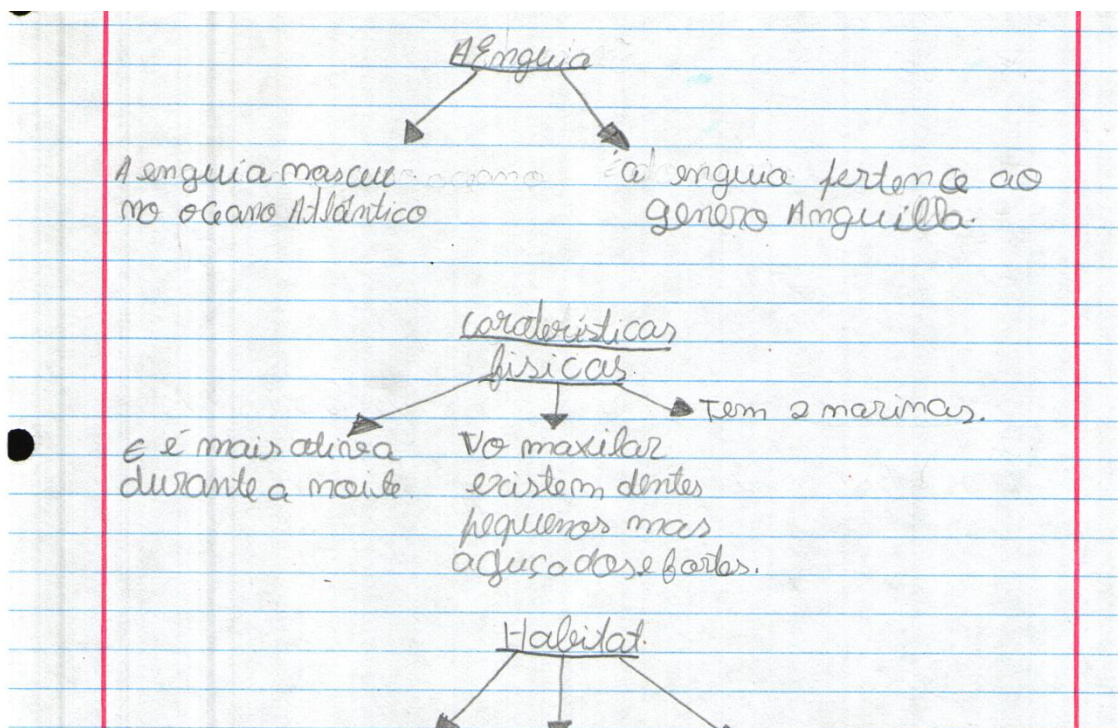 A Enguia
A enguia nasceu
no oceano Atlântico
a enguia pertence ao
genero Anguilla.
caraterísticas
físicas.
Tem 2 narinas.
E é mais ativa
durante a noite.
No maxilar
existem dentes
pequenos mas
aguçados e fortes.
Habitat.